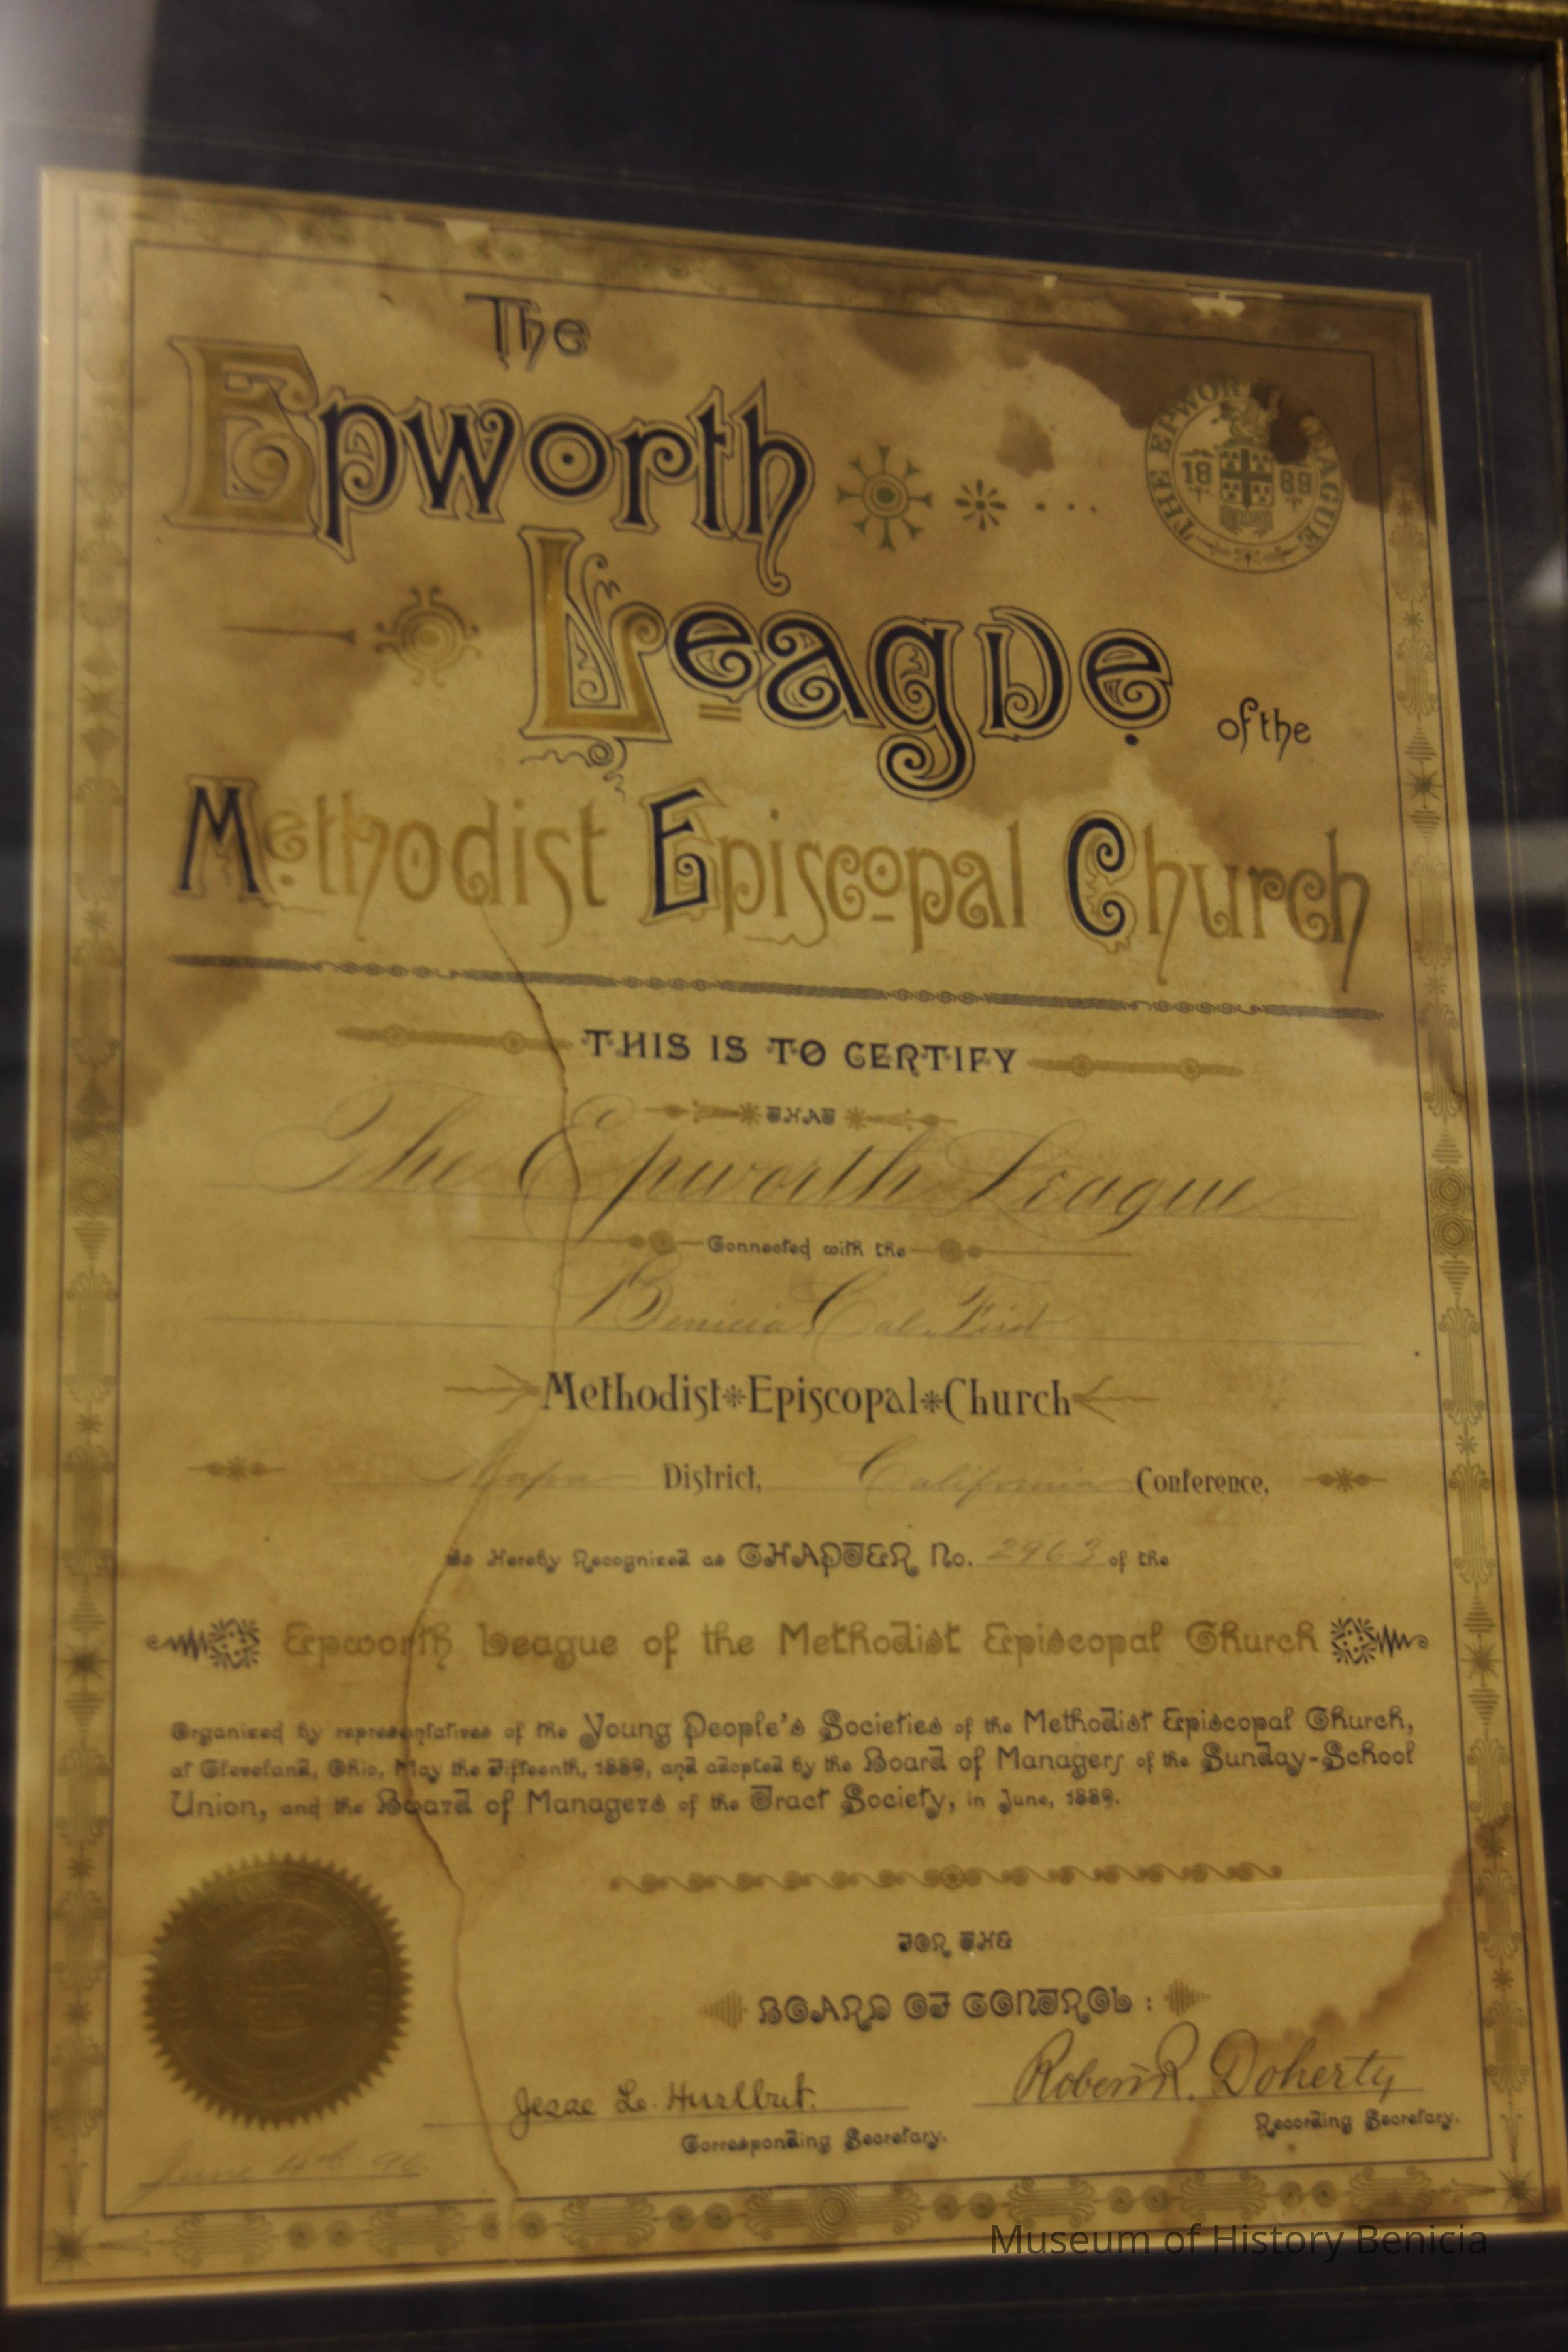 The
Epworth
THE EPWORTH LEAGUE
18 89
League of the
Methodist Episcopal Church
THIS IS TO CERTIFY
THAT
The Epworth League
Connected with the
Benicia Cal. First
Methodist Episcopal Church
Napa District, California Conference,
Is Hereby Recognized as CHAPTER No. 2963 of the
Epworth League of the Methodist Episcopal Church
Organized by representatives of the Young People's Societies of the Methodist Episcopal Church,
at Cleveland, Ohio, May the Fifteenth, 1889, and adopted by the Board of Managers of the Sunday-School
Union, and the Board of Managers of the Tract Society, in June, 1889.
FOR THE
BOARD OF CONTROL:
Jesse L. Hurlbut.
Robert R. Doherty
Corresponding Secretary.
Recording Secretary.
June 4th 90.
Museum of History Benicia